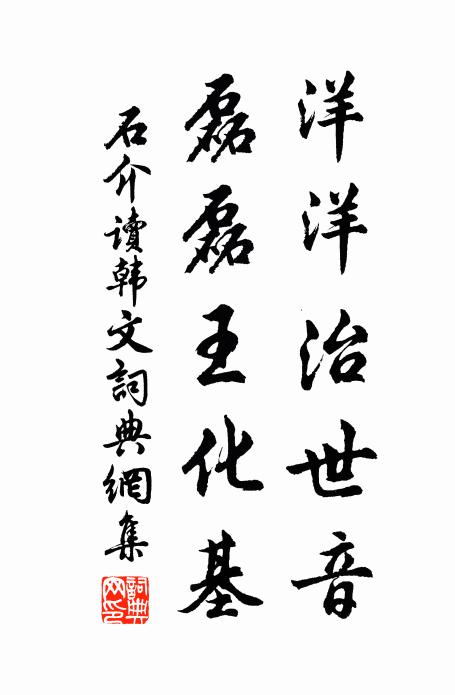 洋洋治世音
磊磊王化基
石介讀韩文詞典網集
詞典網印